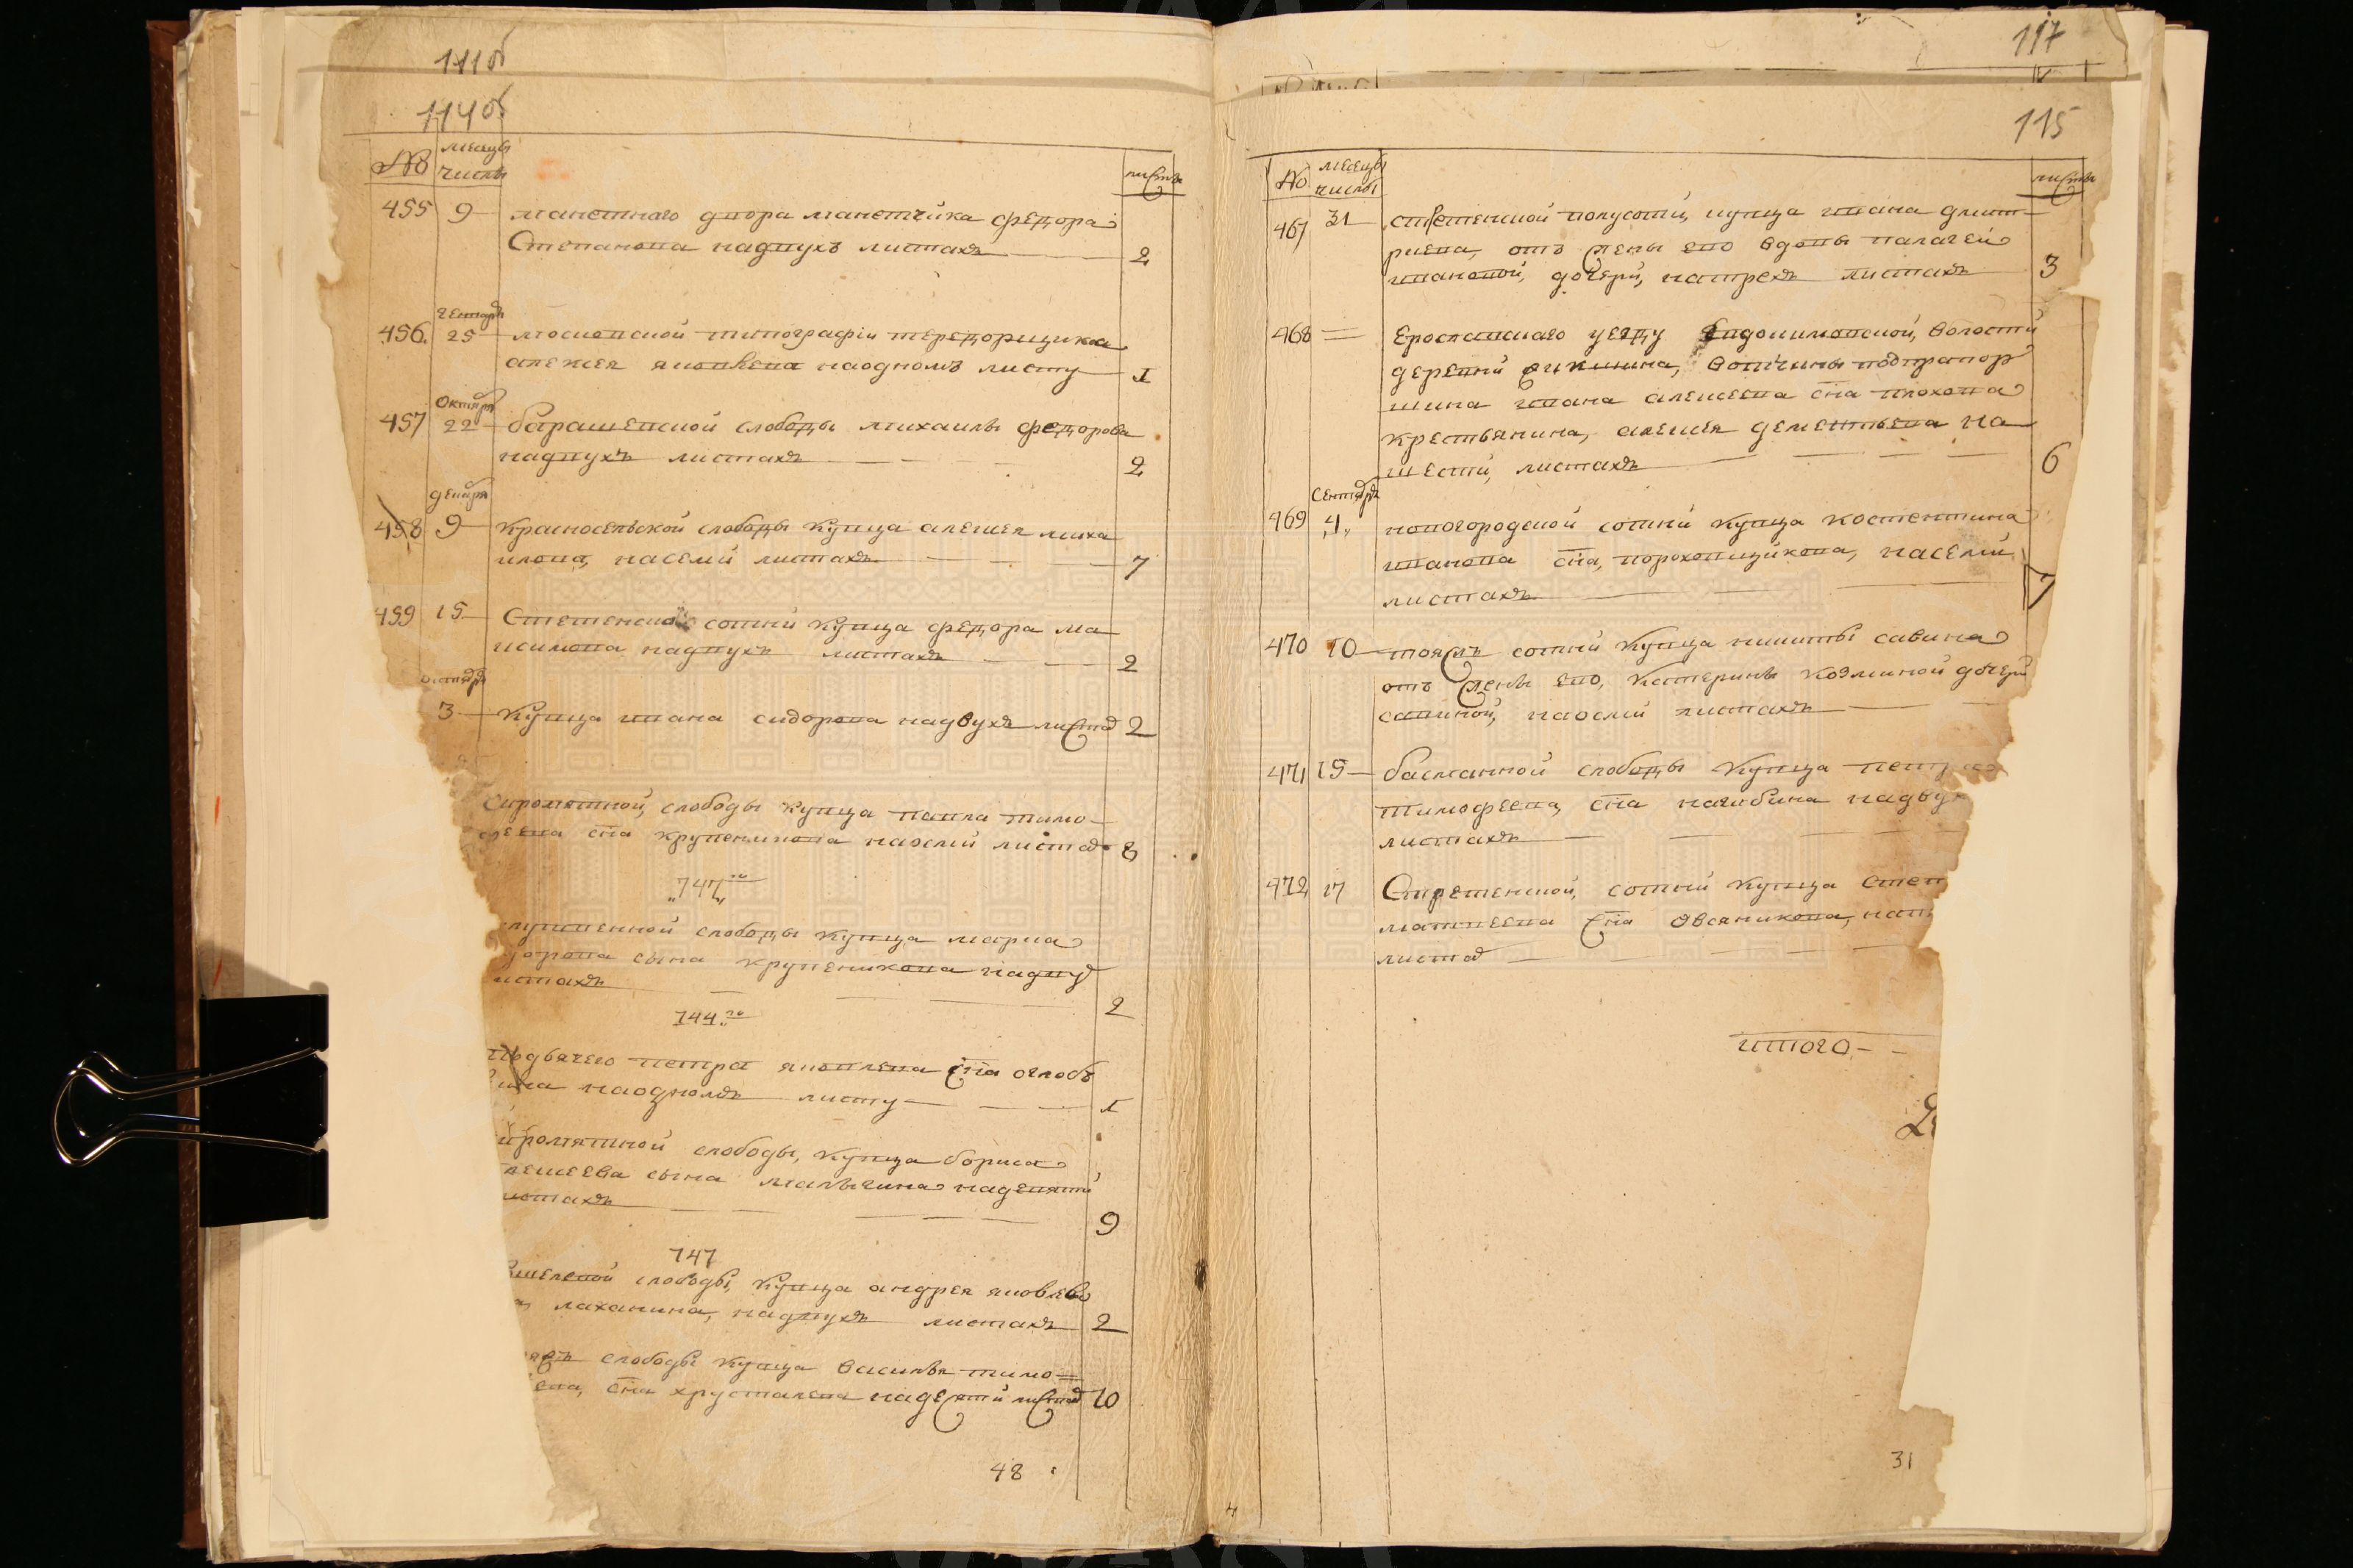 111об
114об
№ месяцы числы листы
455 9 манетнаго двора манетчика федора
Степанова надвухъ листахъ 2
456. генваръ 25 московской типографіи тередорщика
алексея яковлева наодномъ листу 1
457 октябръ 22 барашевской слободы михаилы федорова
надвухъ листахъ 2
458 декабря 9 красносельской слободы купца алексея миха
илова, насеми листахъ 7
459 15 Стретенской сотни купца федора ма
ксимова надвухъ листахъ 2
октябръ
3 купца ивана сидорова надвухъ листах 2
сыромятной, слободы купца павла тимо
феева сна крупеникова наосми листах 8
„747„го
лушвенной слободы купца марка
сына крупеникова надву
истахъ 2
744.го
подьячего петра яковлева сна оглоб
лина наодномъ листу 1
ыромятной слободы, купца бориса
лексеева сына малыгина надевяти
истахъ 9
747
слободы, купца андрея яковлева
лаханина, надвухъ листахъ 2
слободы купца василья тимо
ева, сна хрусталева надесяти листах 10
48
117
115
№ месяцы числы листы
467 31 стретенской полусотни, купца ивана дмит
риева, отъ жены его вдовы палагеи
ивановой, дочери, натрехъ листахъ 3
468 = Ерославскаго уезду волости
деревни вотчины подпрапор
щика ивана алексеева сна плохова
крестьянина, алексея дементьева на
шести, листахъ 6
469 сентябръ 4„ новогородской сотни купца костентина
иванова сна, пороховщикова, насеми
листахъ 7
470 10 тояжъ сотни купца никиты савина
отъ жены его, катерины козминой дочери
савиной, наосми листахъ
471 15 басманной слободы купца пет
тимофеева, сна нагибина надву
листахъ
472 17 Стретенской, сотни купца степ
матвеева сна Овсяникова, на
листах
итого
31